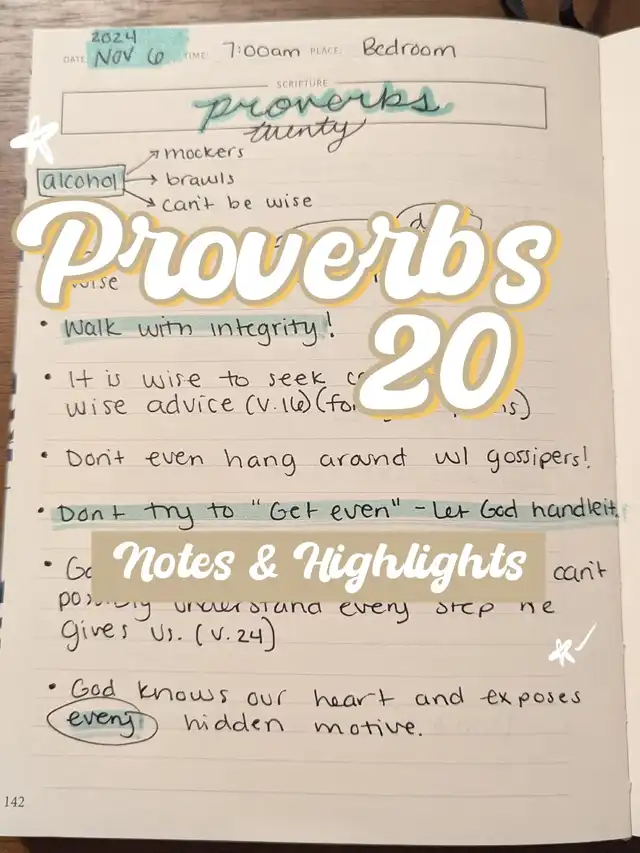 2024
DATE: NOV 6 TIME: 7:00am PLACE: Bedroom
SCRIPTURE
proverbs
twenty
mockers
alcohol brawls
can't be wise
Proverbs
wise
20
• Walk with integrity!
• It is wise to seek
wise advice (v.16)
• Don't even hang around w/ gossipers!
• Don't try to "Get even" - Let God handle it.
Notes & Highlights
• can't
possibly understand every step he
gives us. (v.24)
• God knows our heart and exposes
every hidden motive.
142